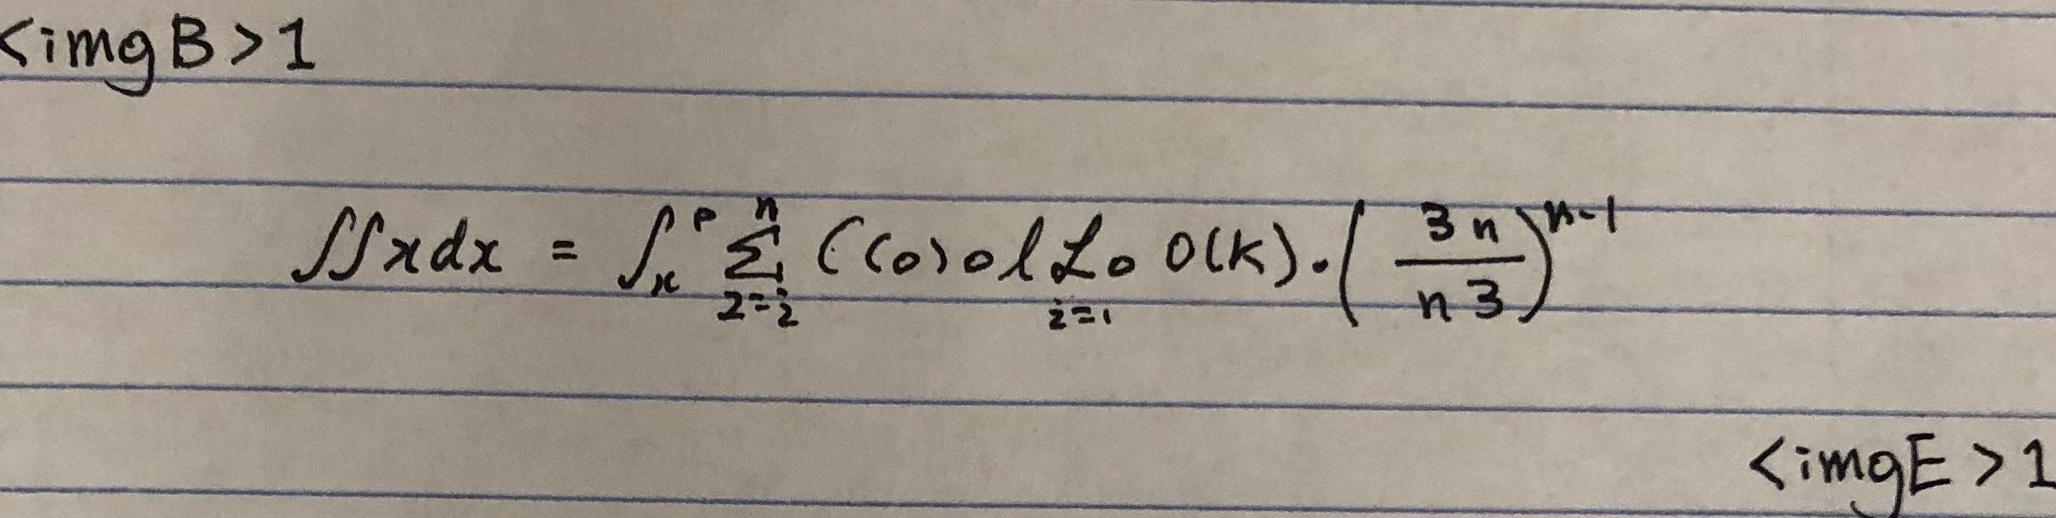 <imgB>1
∬xdx = ∫ₓᵖ ∑_{2=2}^{n} ((o)olℒo_{i=1} O(k)·(3n/n3)ⁿ⁻¹
<imgE>1